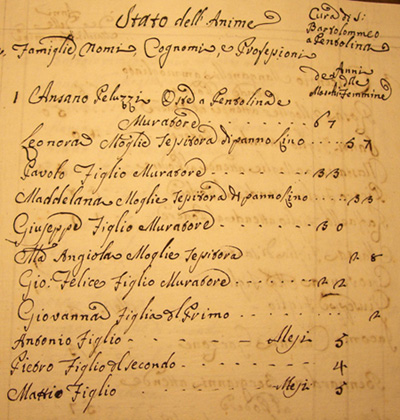 Stato dell'Anime
Cura di S:
Bartolommeo
a Pentolina
Famiglie, Nomi, Cognomi, e Profesioni
Anni
delle
de Maschi Femmine
1 Ansano Peluzzi Oste a Pentolina e
Muratore 67
Leonora Moglie Tesitora di panno lino 57
Pavolo Figlio Muratore 33
Maddelana Moglie Tesitora di panno lino 33
Giuseppe Figlio Muratore 30
Ma Angiola Moglie Tesitora 28
Gio: Felice Figlio Muratore 22
Giovanna Figlia del Primo 2
Antonio Figlio Mesi 5
Pietro Figlio del secondo 4
Mattio Figlio Mesi 5